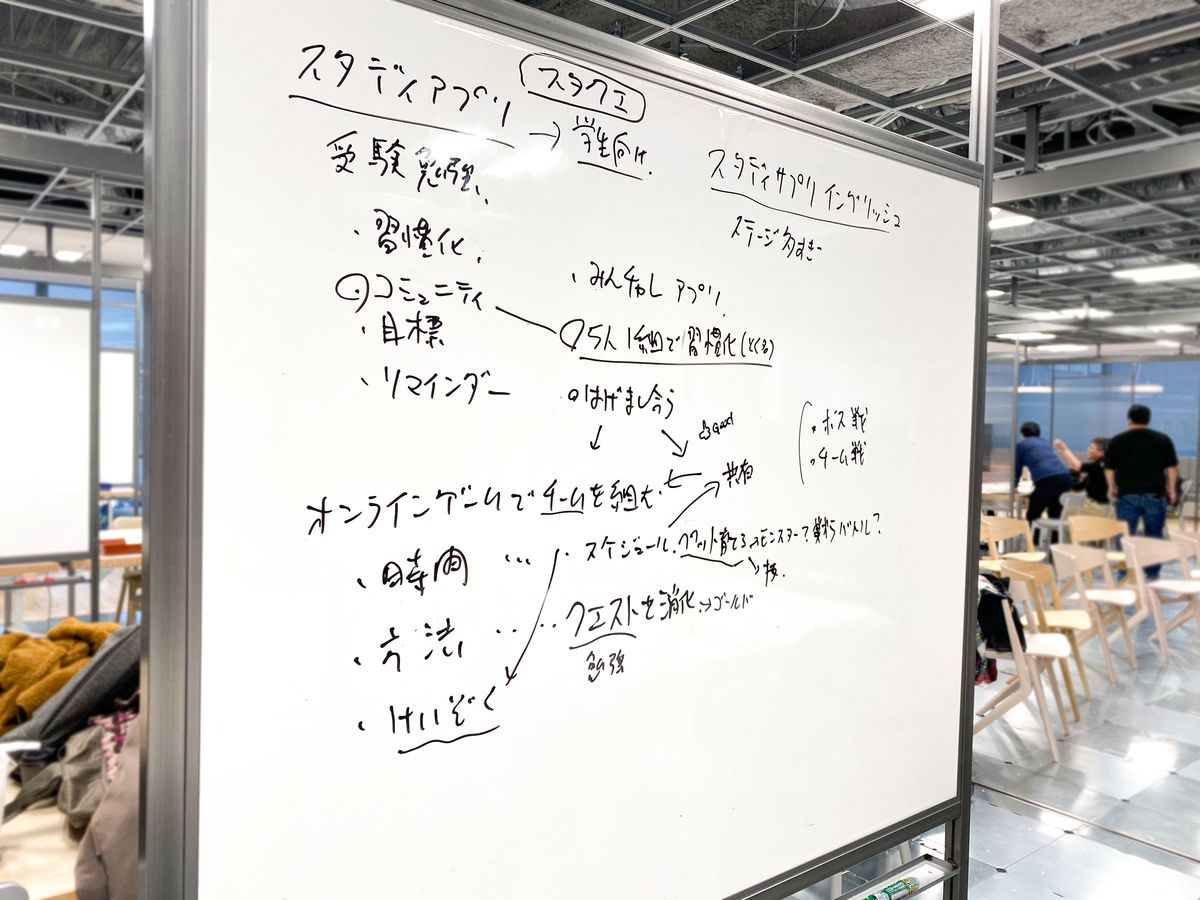 スタディアプリ
スタクエ
→ 学生向け.
受験勉強、
・習慣化、
・コミュニティ
・目標
・リマインダー
スタディサプリ イングリッシュ
ステージ多すぎ
・みんチャレ アプリ、
5人1組で習慣化(とくる)
はげまし合う
Good
共有
・ボス戦
・チーム戦
オンラインゲームでチームを組む、
・時間 … スケジュール、
育てる→モンスター? バトル?
・方法 ‥‥ クエストを消化→ゴールド
勉強
・けいぞく